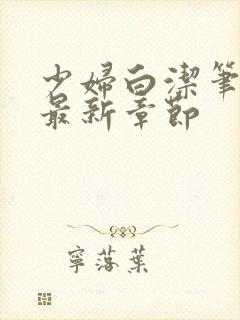 少婦白潔筆
最新章節
寧落葉